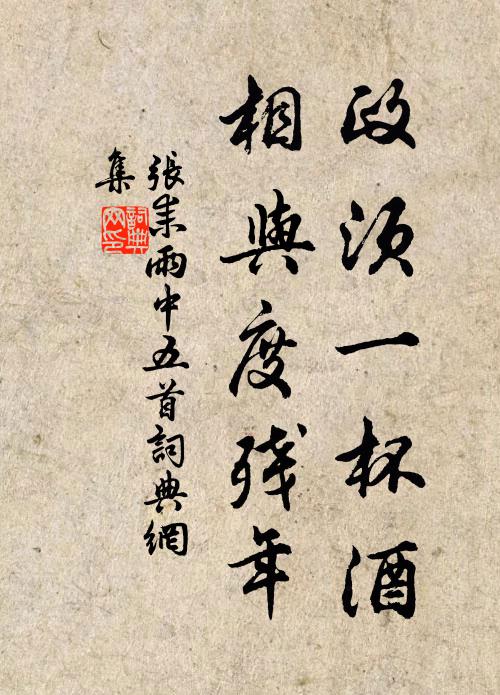 政须一杯酒
相與度残年
張耒雨中五首詞典網
集
詞典網印